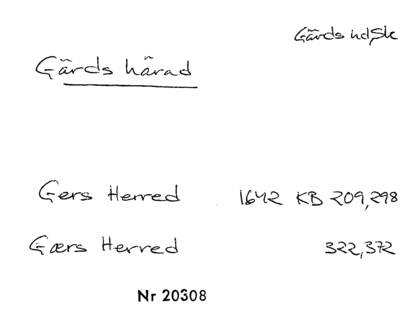 Gärds hd, Sk
Gärds härad
Gers Herred 1642 KB 209,298
Gærs Herred 322,372
Nr 20308